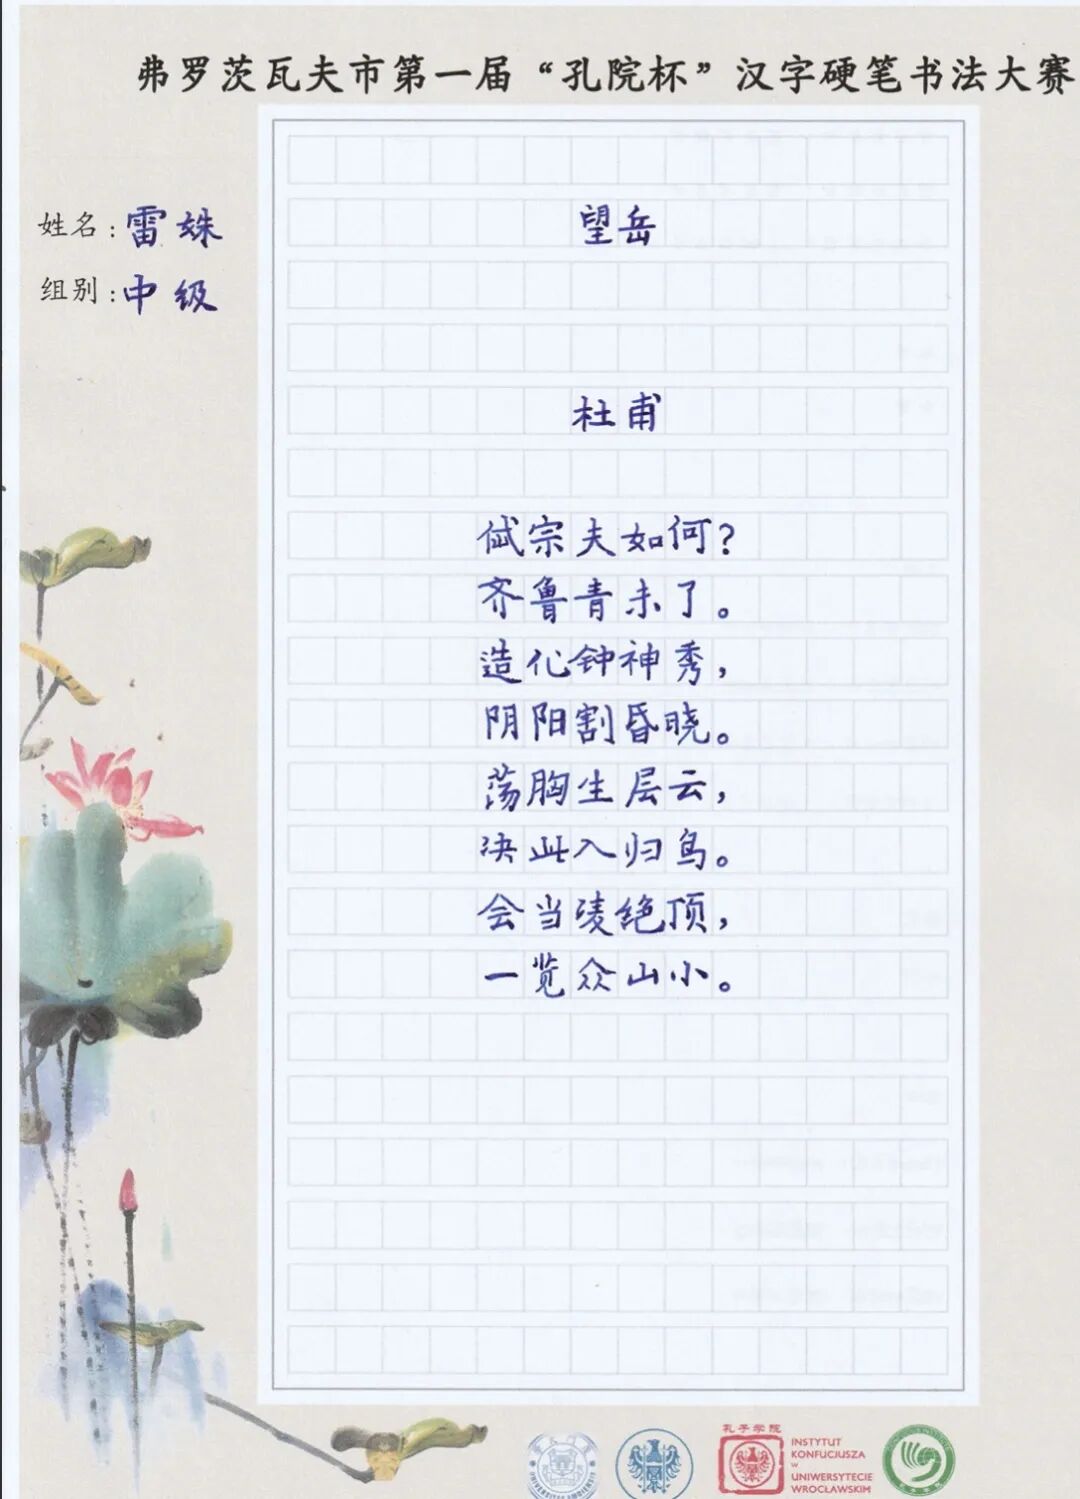 弗罗茨瓦夫市第一届“孔院杯”汉字硬笔书法大赛
姓名:雷姝
组别:中级
望岳
杜甫
岱宗夫如何?
齐鲁青未了。
造化钟神秀,
阴阳割昏晓。
荡胸生层云,
决此入归鸟。
会当凌绝顶,
一览众山小。
孔子学院
INSTYTUT
KONFUCJUSZA
w
UNIWERSYTECIE
WROCŁAWSKIM